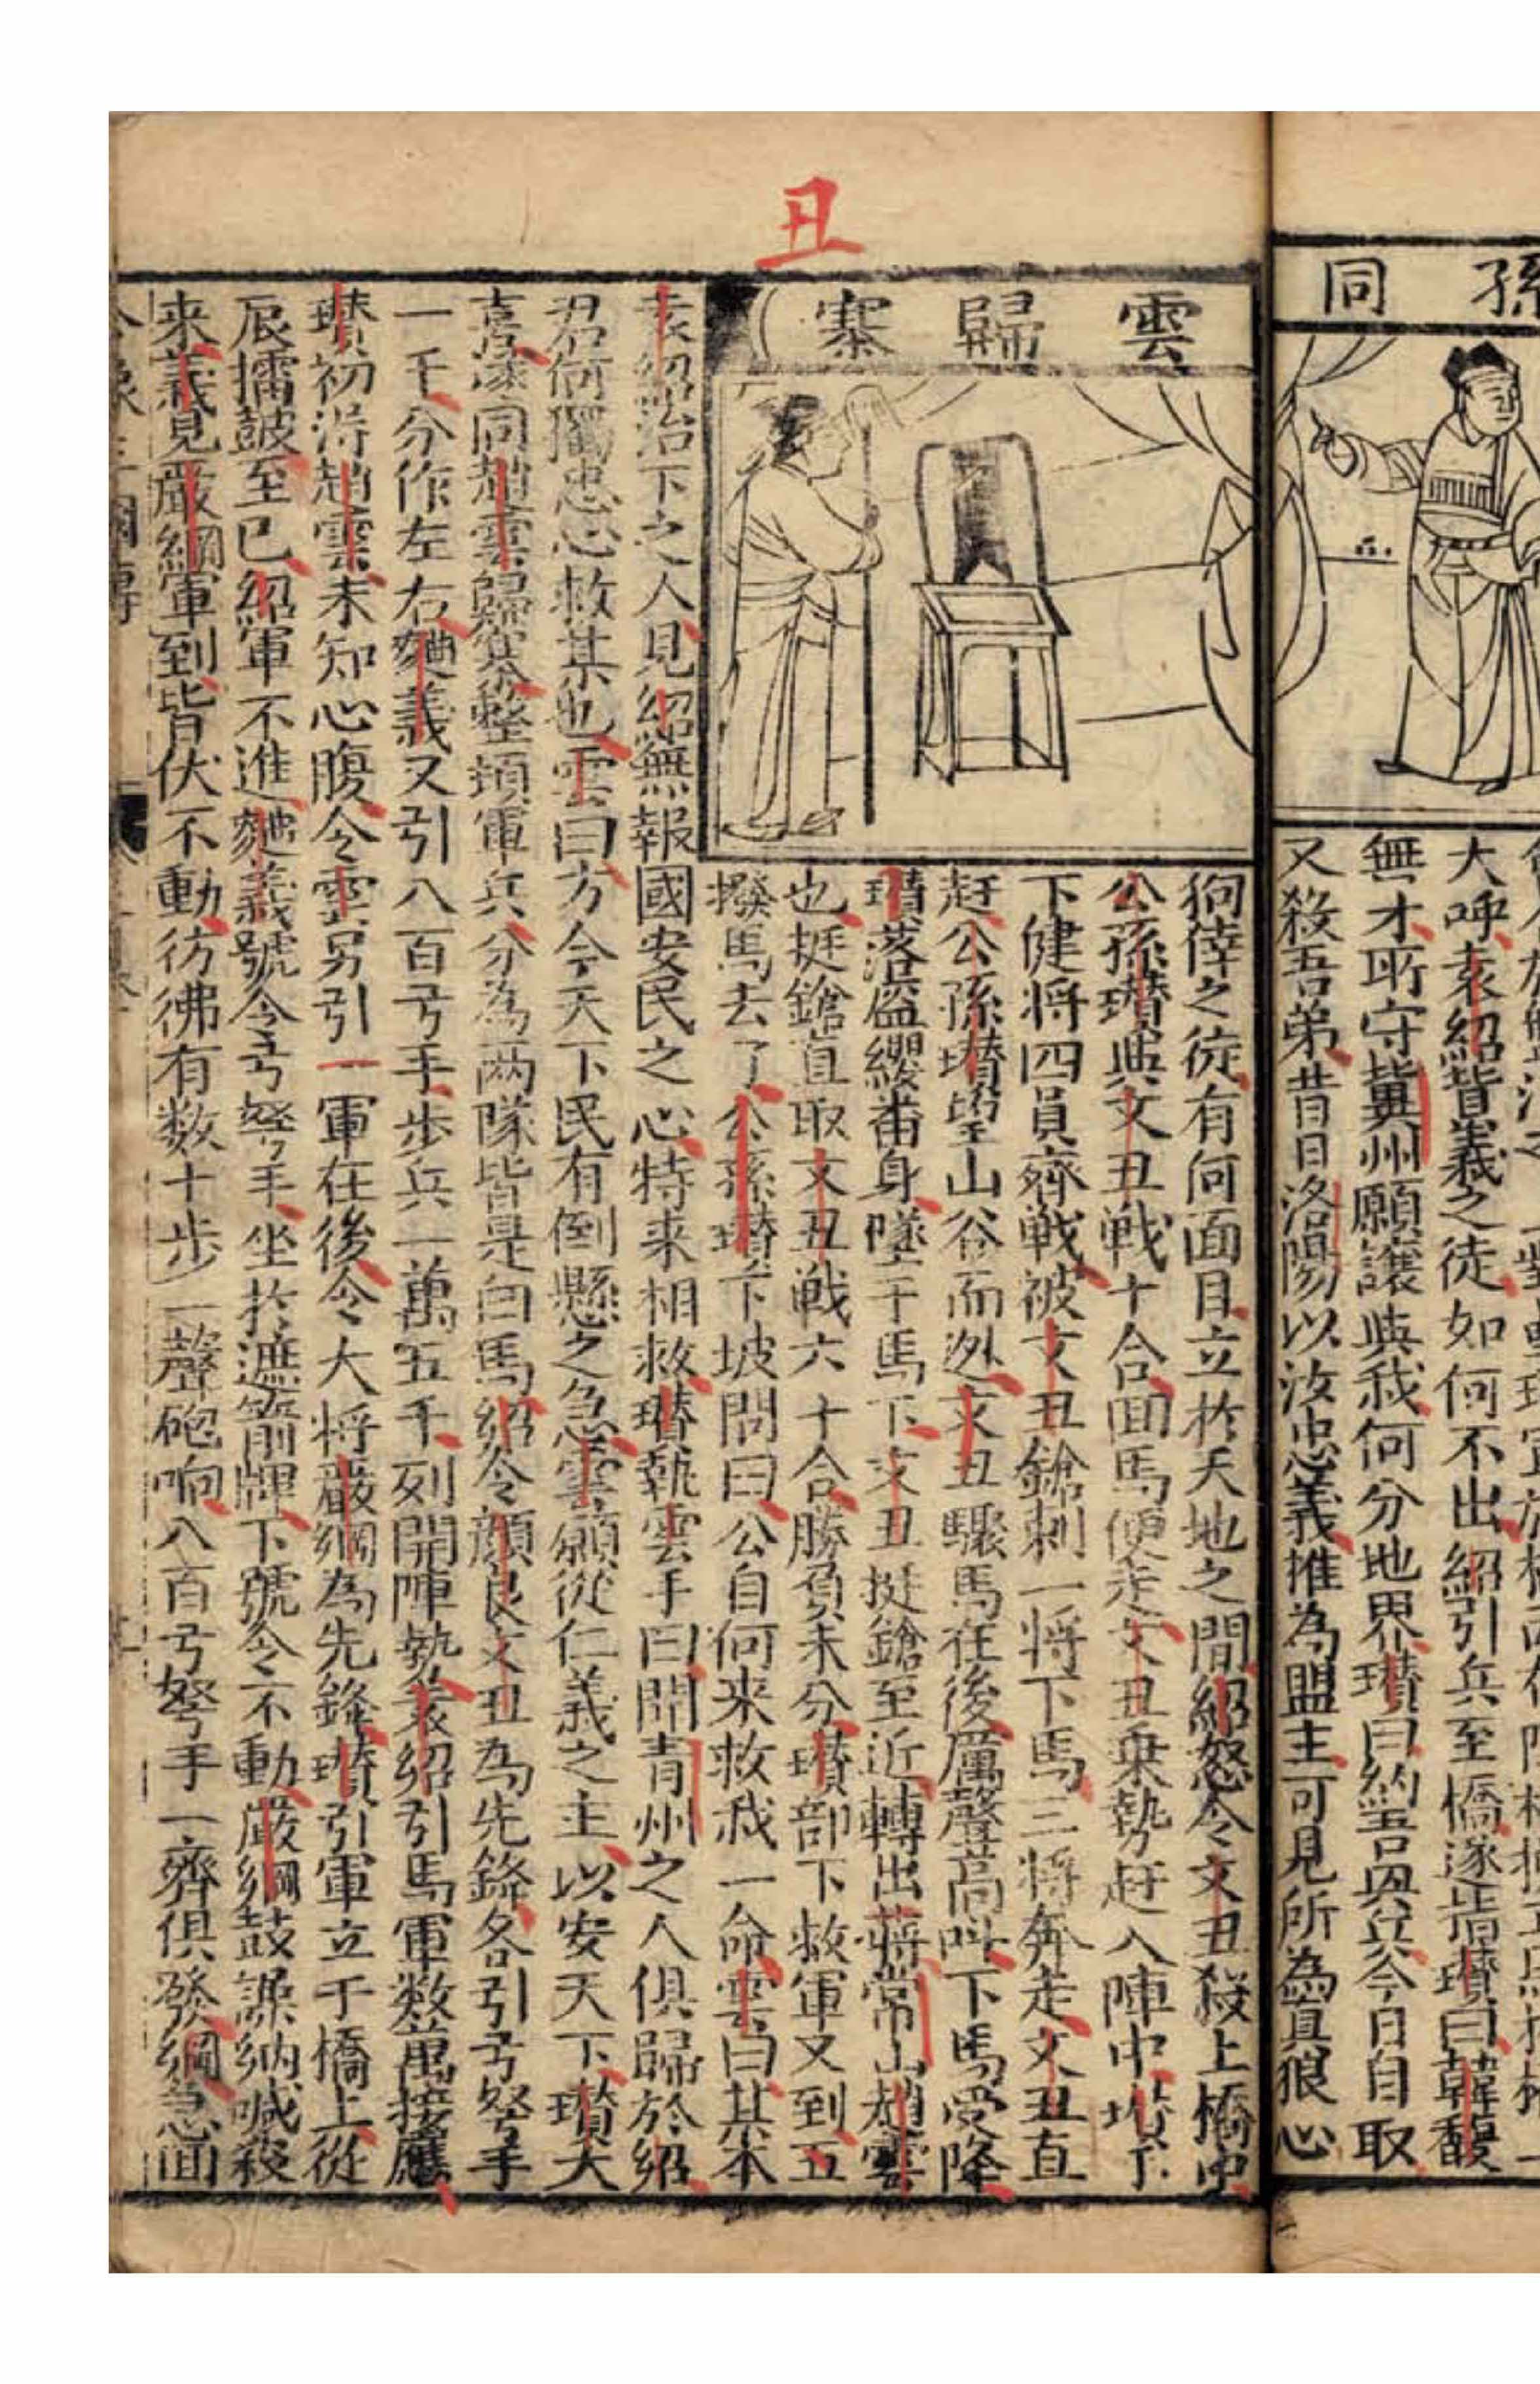 孫同
大呼袁紹背義之徒如何不出紹引兵至橋遂指瓚曰韓馥
無才所守冀州願讓與我何分地界瓚曰約吾與兵今日自取
又殺吾弟昔日洛陽以汝忠義推為盟主可見所為真狼心
丑
雲歸寨
狗倖之徒有何面目立於天地之間紹怒令文丑殺上橋中
公孫瓚與文丑戰十合回馬便走文丑乗勢赶入陣中瓚手
下健将四員齊戰被文丑鎗刺一将下馬三将奔走文丑直
赶公孫瓚望山谷而迯文丑驟馬在後厲聲高叫下馬受降
瓚落盔纓番身墜于馬下文丑挺鎗至近轉出一将常山趙雲
也挺鎗直取文丑戰六十合勝負未分瓚部下救軍又到丑
撥馬去了公孫瓚下坡問曰公自何来救我一命雲曰某本
袁紹治下之人見紹無報國安民之心特来相救瓚執雲手曰聞青州之人俱歸於紹
君何獨忠心救某也雲曰方今天下民有倒懸之急雲願從仁義之主以安天下瓚大
喜遂同趙雲歸寨整頓軍兵分為两隊皆是白馬紹令顏良文丑為先鋒各引弓弩手
一千分作左右麴義又引八百弓手步兵一萬五千列開陣勢袁紹引馬軍数萬接應
瓚初淂趙雲未知心腹令雲另引一軍在後令大将嚴綱為先鋒瓚引軍立于橋上從
辰擂鼓至巳紹軍不進麴義號令弓弩手坐於遮箭牌下號令不動嚴綱鼓譟納喊殺
来義見嚴綱軍到皆伏不動彷彿有数十步一聲砲响八百弓弩手一齊俱發綱急回